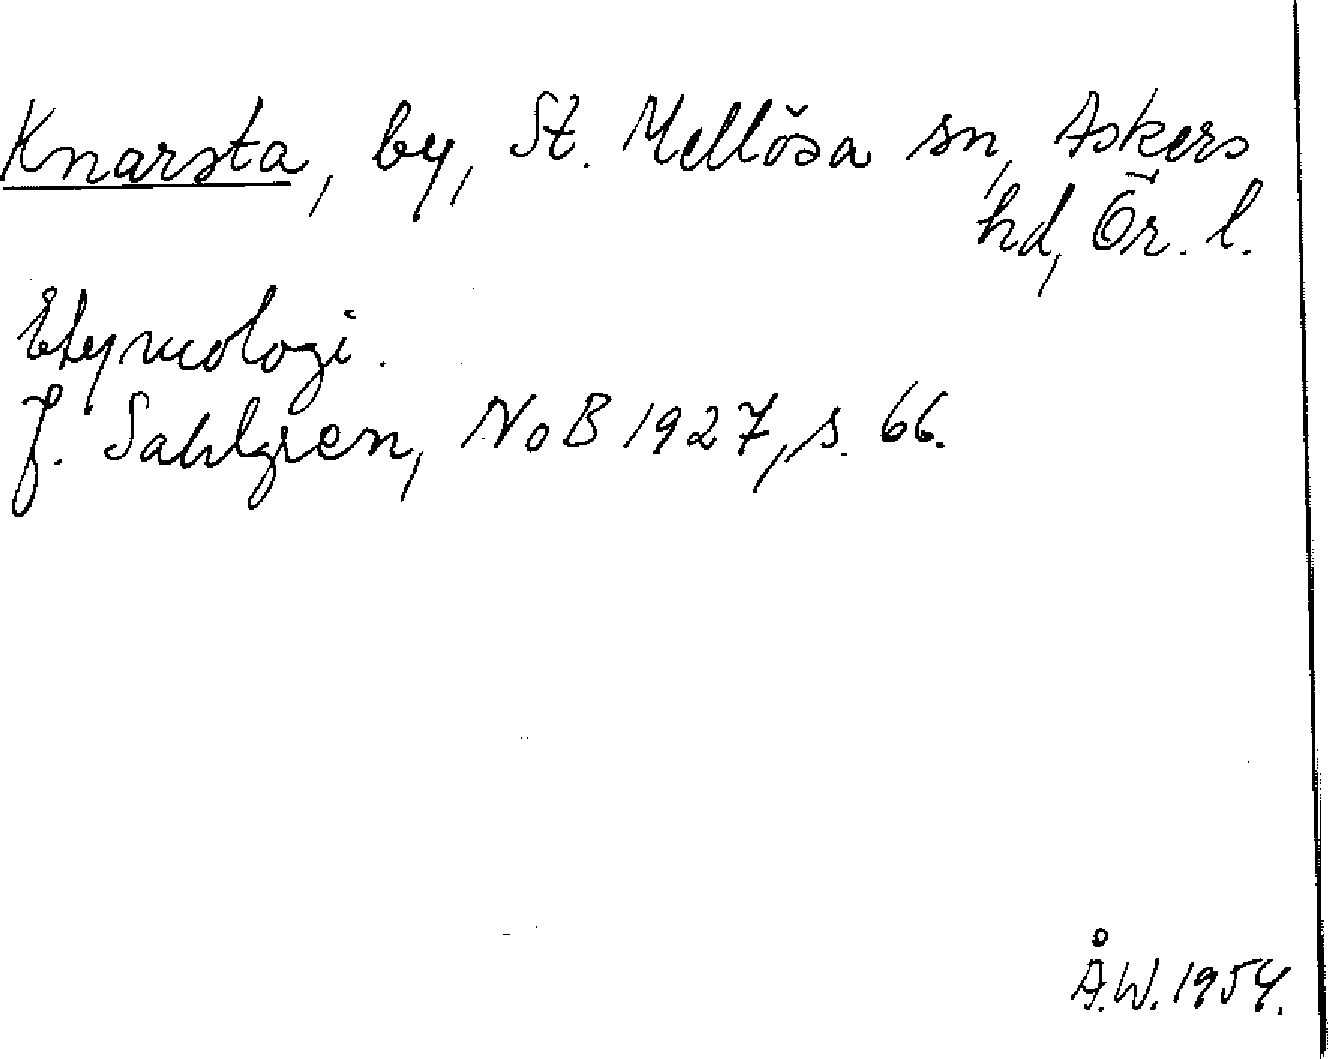 Knarsta, by, St. Mellösa sn, Askers
hd, Ör. l.
Etymologi.
J. Sahlgren, NoB 1927, s. 66.
Å.W. 1954.